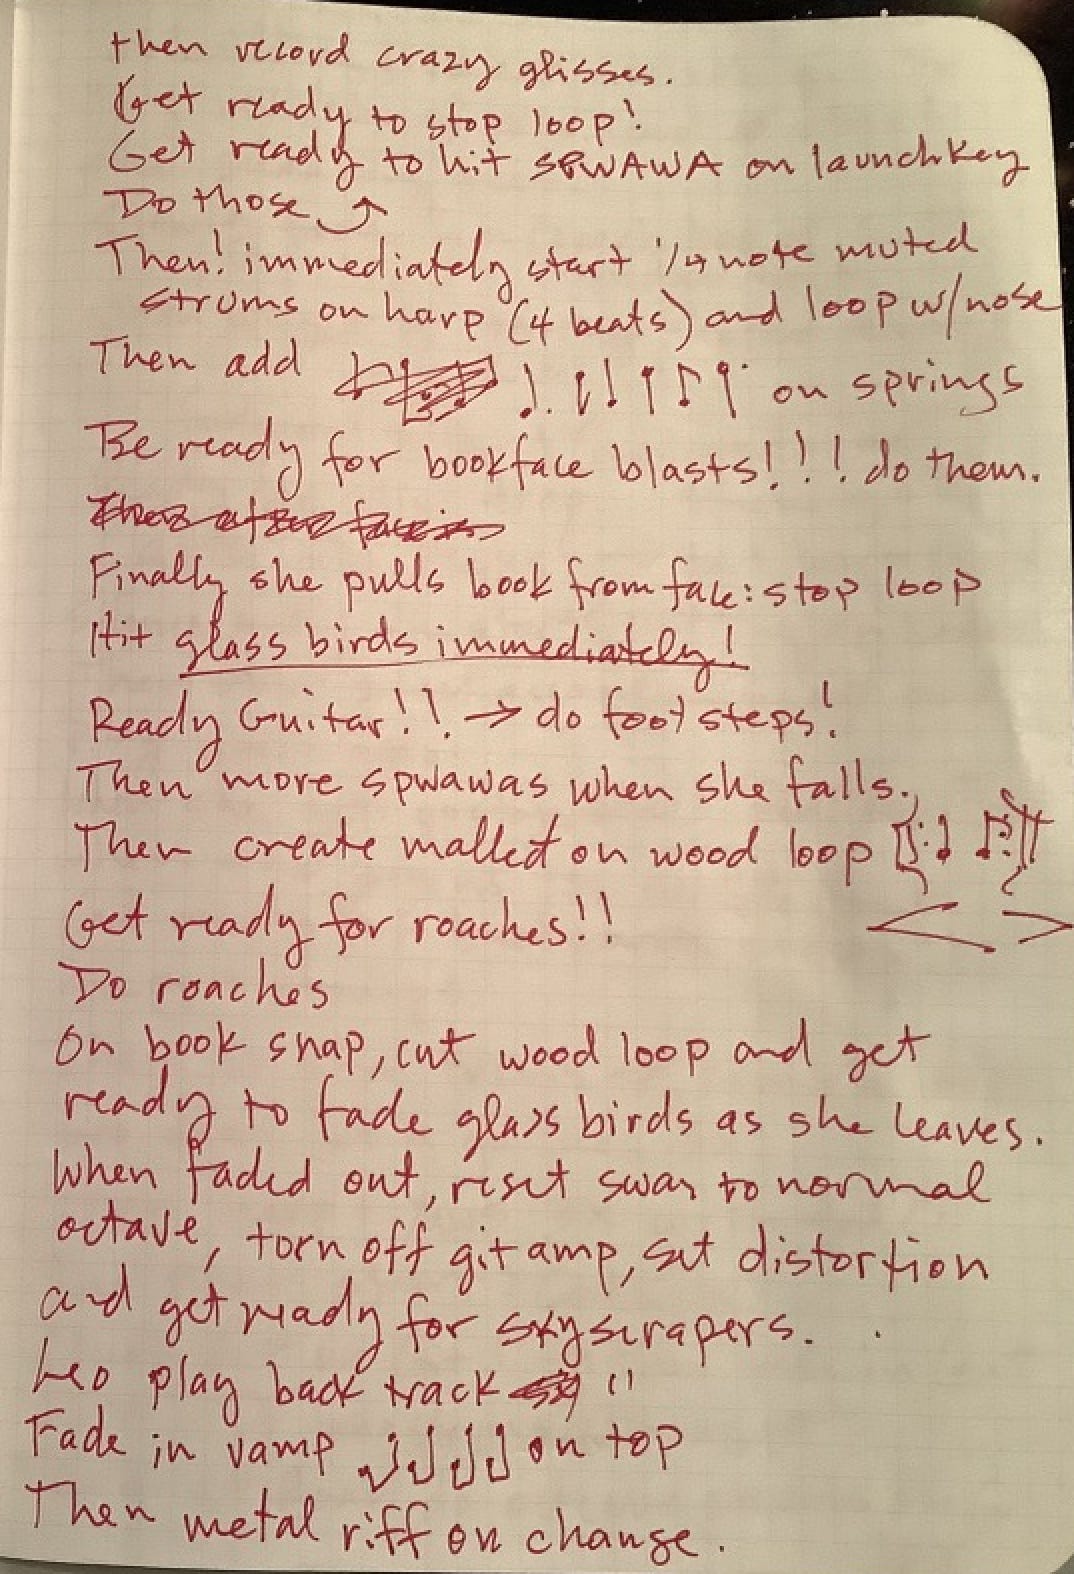 then record crazy glisses.
Get ready to stop loop!
Get ready to hit SPWAWA on launchkey
Do those ⤴
Then! immediately start 1/4 note muted
strums on harp (4 beats) and loop w/nose
Then add on springs
Be ready for bookface blasts!!! do them.
Finally she pulls book from face: stop loop
Hit glass birds immediately!
Ready Guitar!! → do footsteps!
Then more spwawas when she falls.
Then create mallet on wood loop
< >
Get ready for roaches!!
Do roaches
On book snap, cut wood loop and get
ready to fade glass birds as she leaves.
When faded out, reset swar to normal
octave, torn off git amp, set distortion
and get ready for skyscrapers.
Leo play back track
Fade in vamp ♩♩♩♩ on top
Then metal riff on change.